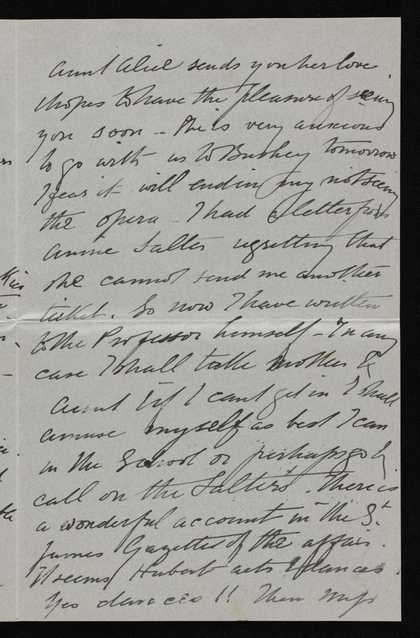 Aunt Alice sends you her love
& hopes to have the pleasure of seeing
you soon – She is very anxious
to go with us to Bushey tomorrow
I fear it will end in my not seeing
the opera – I had a letter from
Annie Salter regretting that
she cannot send me another
ticket. So now I have written
to the Professor himself – In any
case I shall take Mother &
Aunt & if I cant get in I shall
amuse myself as best I can
in the School or perhaps go &
call on the Salters. There is
a wonderful account in the St.
James Gazette of the affair.
It seems Hubert acts & dances
Yes dances !! Then